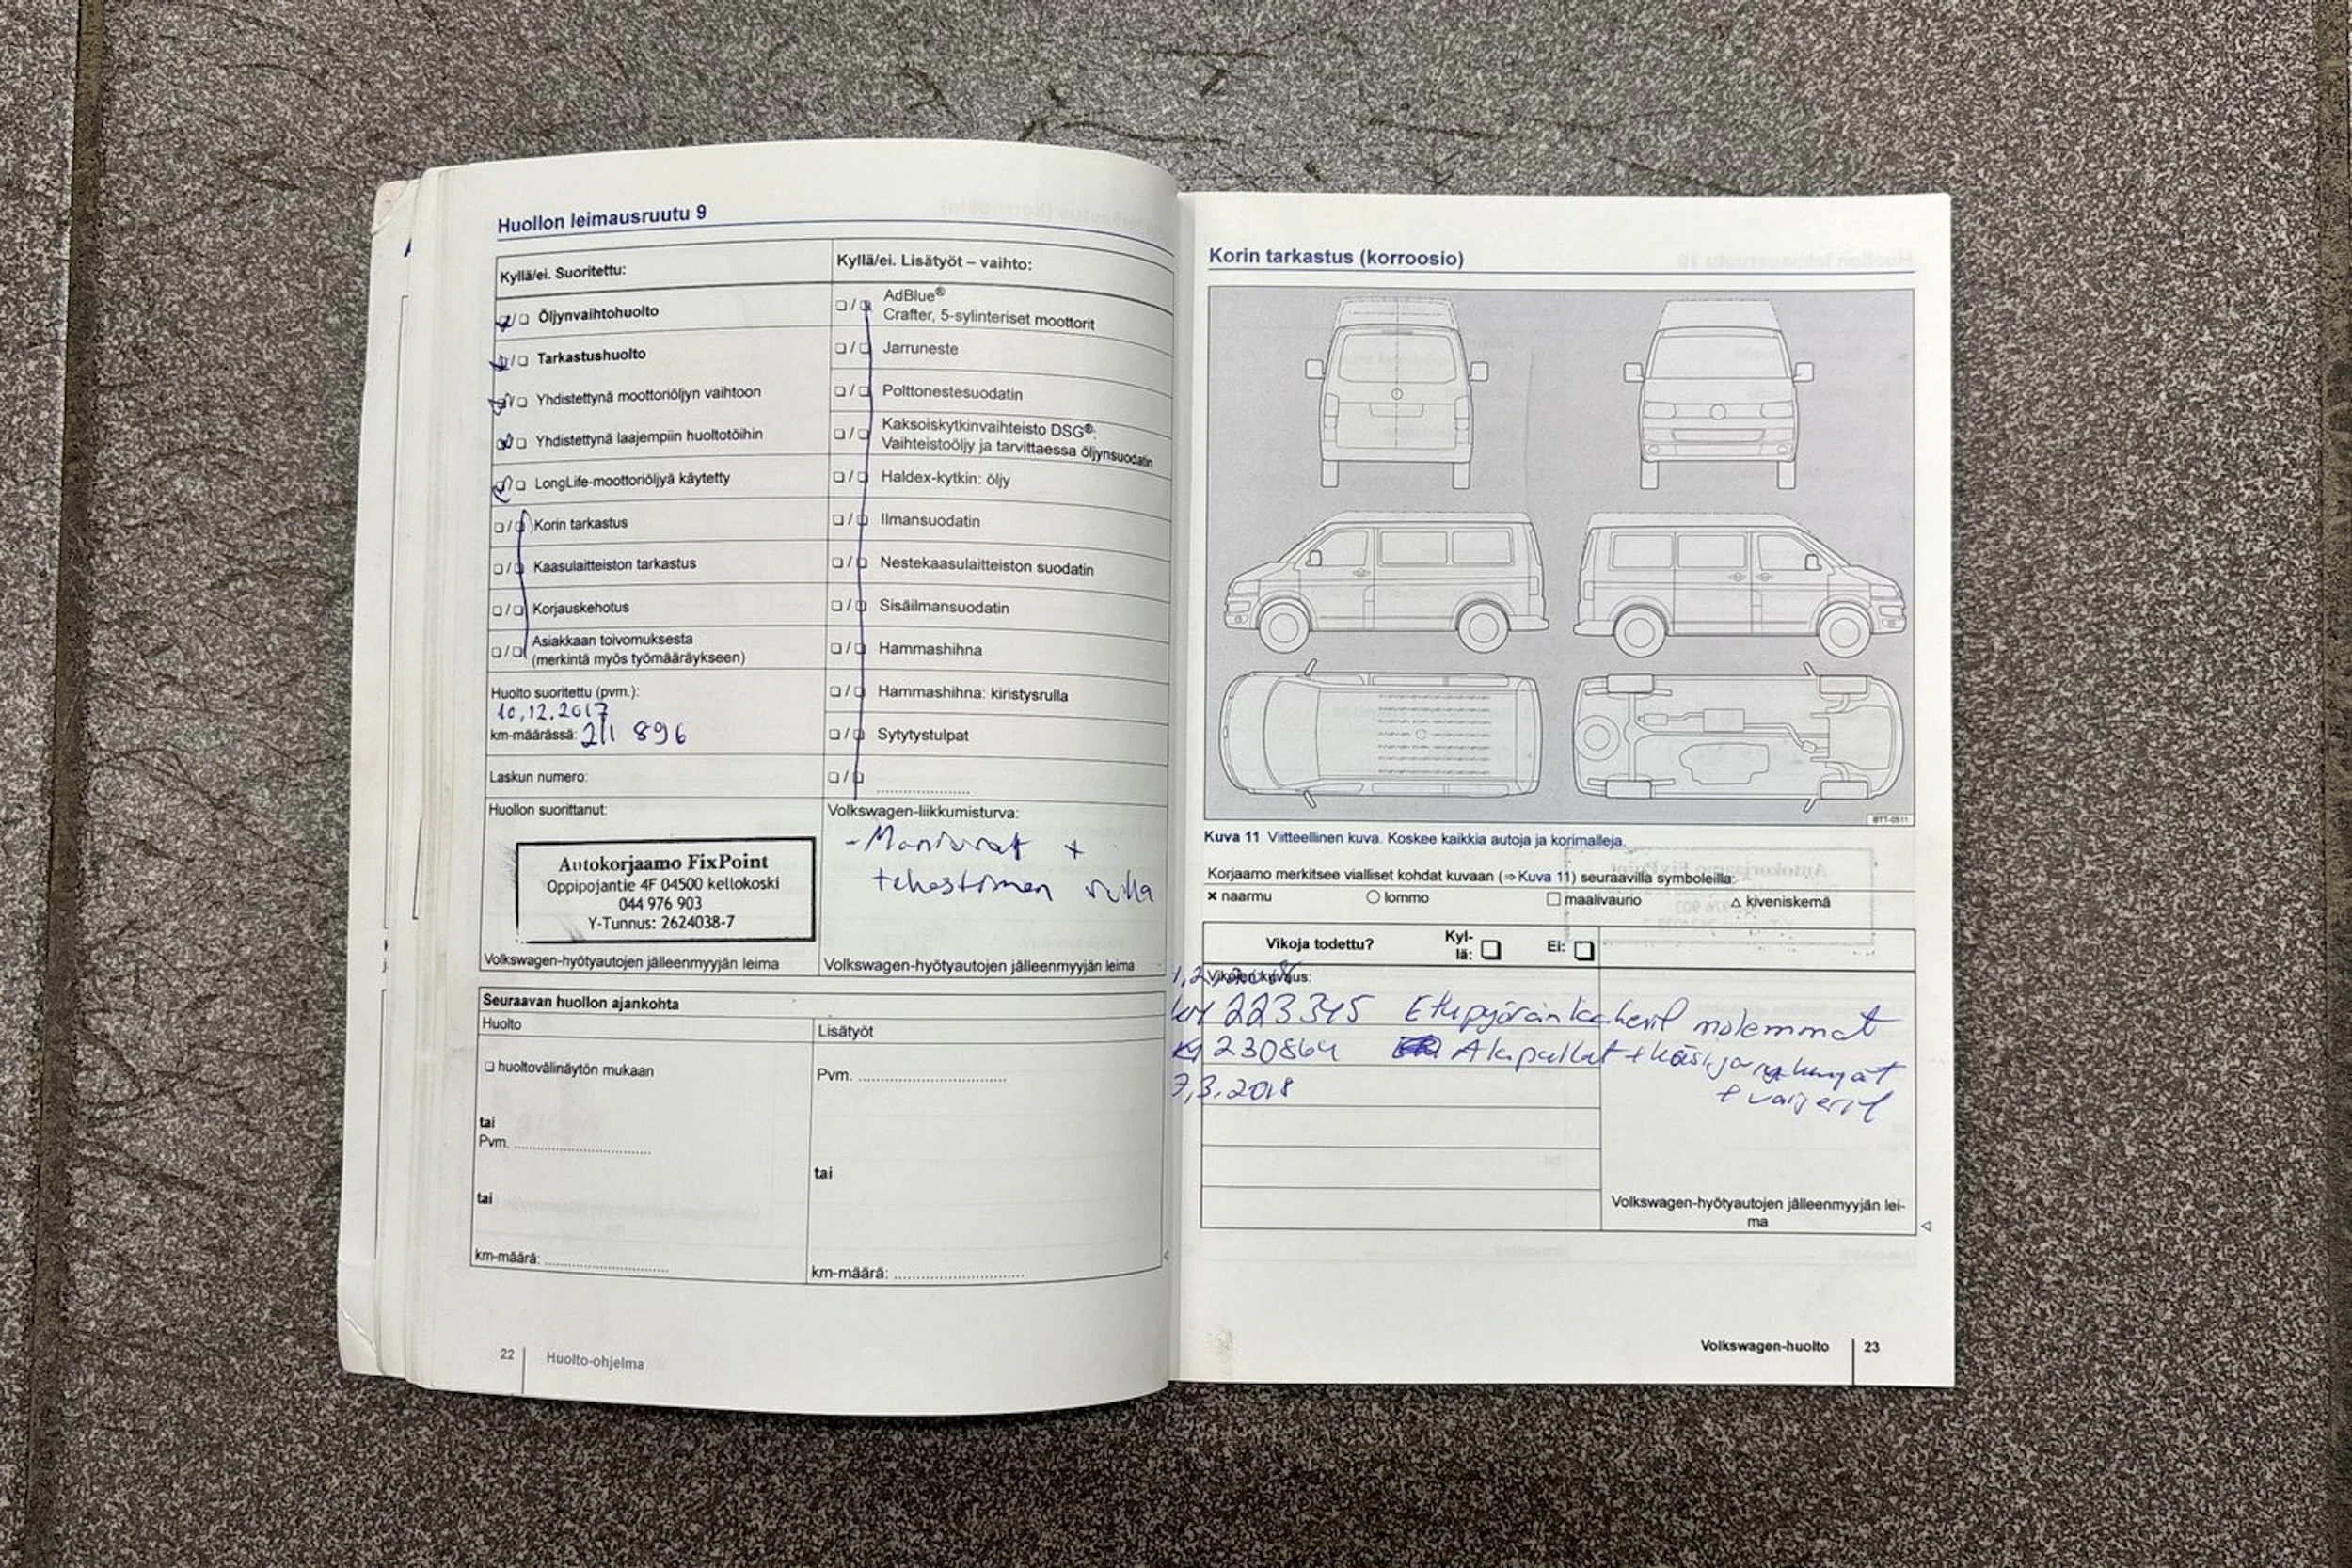 Huollon leimausruutu 9
Kyllä/ei. Suoritettu:
❏/❏ Öljynvaihtohuolto
❏/❏ Tarkastushuolto
❏/❏ Yhdistettynä moottoriöljyn vaihtoon
❏/❏ Yhdistettynä laajempiin huoltotöihin
❏/❏ LongLife-moottoriöljyä käytetty
❏/❏ Korin tarkastus
❏/❏ Kaasulaitteiston tarkastus
❏/❏ Korjauskehotus
❏/❏ Asiakkaan toivomuksesta
(merkintä myös työmääräykseen)
Huolto suoritettu (pvm.):
10,12.2017
km-määrässä: 211 896
Laskun numero:
Huollon suorittanut:
Autokorjaamo FixPoint
Oppipojantie 4F 04500 kellokoski
044 976 903
Y-Tunnus: 2624038-7
Volkswagen-hyötyautojen jälleenmyyjän leima
Kyllä/ei. Lisätyöt – vaihto:
❏/❏ AdBlue®
Crafter, 5-sylinteriset moottorit
❏/❏ Jarruneste
❏/❏ Polttonestesuodatin
❏/❏ Kaksoiskytkinvaihteisto DSG®:
Vaihteistoöljy ja tarvittaessa öljynsuodatin
❏/❏ Haldex-kytkin: öljy
❏/❏ Ilmansuodatin
❏/❏ Nestekaasulaitteiston suodatin
❏/❏ Sisäilmansuodatin
❏/❏ Hammashihna
❏/❏ Hammashihna: kiristysrulla
❏/❏ Sytytystulpat
❏/❏ ....................
Volkswagen-liikkumisturva:
+
Volkswagen-hyötyautojen jälleenmyyjän leima
Seuraavan huollon ajankohta
Huolto
❏ huoltovälinäytön mukaan
tai
Pvm. ..............................
tai
km-määrä: ...........................
Lisätyöt
Pvm. ................................
tai
km-määrä: ............................
22 Huolto-ohjelma
Korin tarkastus (korroosio)
BTT-0511
Kuva 11 Viitteellinen kuva. Koskee kaikkia autoja ja korimalleja.
Korjaamo merkitsee vialliset kohdat kuvaan (⇒ Kuva 11) seuraavilla symboleilla:
× naarmu ○ lommo □ maalivaurio △ kiveniskemä
Vikoja todettu? Kyl-
lä: ❏ Ei: ❏
Vikojen kuvaus:
223345 Etupyörän laakerit molemmat
230864 Alapallot +
7,3.2018
Volkswagen-hyötyautojen jälleenmyyjän lei-
ma
Volkswagen-huolto 23